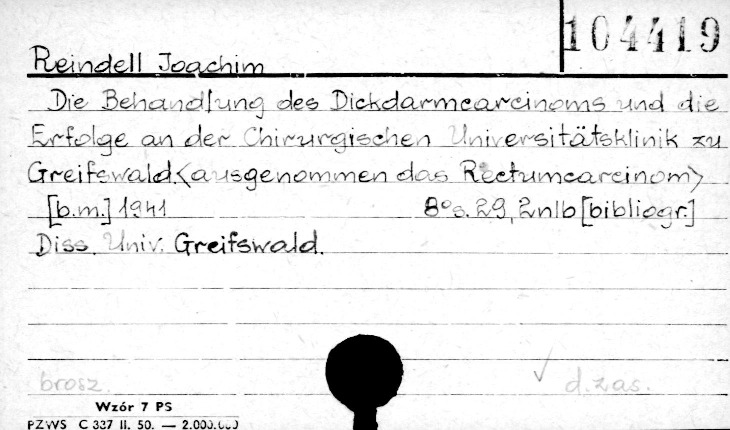 104419
Reindell Joachim
Die Behandlung des Dickdarmcarcinoms und die
Erfolge an der Chirurgischen Universitätsklinik zu
Greifswald.<ausgenommen das Rectumcarcinom>
[b.m.] 1941 8° s. 29, 2nlb [bibliogr.]
Diss. Univ. Greifswald.
brosz. d.zas.
Wzór 7 PS
PZWS C 337 II. 50. — 2.000.000